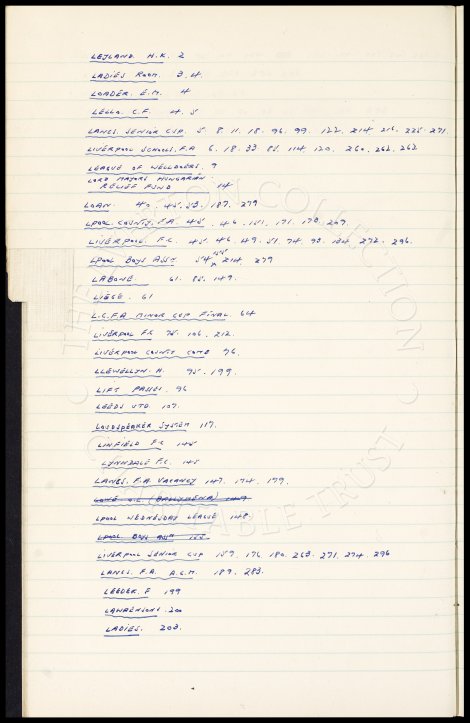 LEYLAND. H.K. 2
LADIES ROOM. 3.4.
LOADER. E.M. 4
4.5
LANCS. SENIOR CUP. 5. 8. 11. 18. 96. 99. 122. 214 216. 225. 271.
LIVERPOOL SCHOOLS. F.A 6. 18. 33. 85. 114 120. 260. 262. 263
LEAGUE OF WELLDOERS. 9
LORD MAYORS HUNGARIAN
RELIEF FUND 14
LOAN. 40. 45. 53. 187. 279
LPOOL. COUNTY. F.A. 45. 46. 151. 171. 178. 207.
LIVERPOOL. F.C. 45 46. 49. 51. 74. 93. 134 272. 296.
LPOOL BOYS ASSN. 54 155 214 279
61. 85. 149.
LIEGE. 61
L.C.F.A MINOR CUP FINAL. 64
LIVERPOOL F.C 75. 106. 212.
LIVERPOOL COUNTY COMB 76.
LLEWELLYN. H. 95. 199.
LIFT 96
LEEDS UTD 107.
LOUDSPEAKER SYSTEM 117.
LINFIELD F.C 145
LYNNDALE F.C. 145
LANCS. F.A. VACANCY 147. 174. 179.
LOVE (BALLYMENA) 149
LPOOL WEDNESDAY LEAGUE 148.
LPOOL BOYS ASSN 155
LIVERPOOL SENIOR CUP 157. 176 180. 263. 271. 274. 296
LANCS. F.A. A.G.M. 189. 283.
LEEDER. F 199
LAWRENSONS. 200
LADIES. 203.
THE COLLECTION
CHARITABLE TRUST